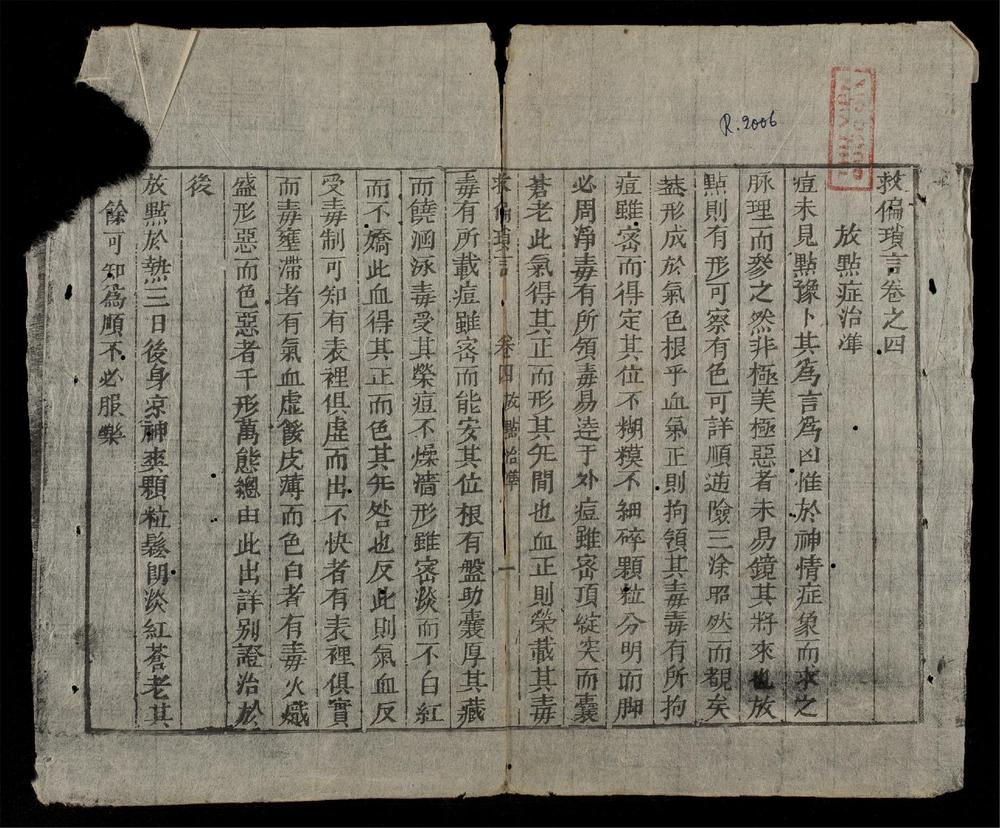 R.2006
救偏瑣言卷之四
放點症治準
痘未見點豫卜其為言為凶惟於神情症象而求之
脉理而參之然非極美極惡者未易鏡其將來也放
點則有形可察有色可詳順逆險三涂昭然而覩矣
葢形成於氣色根乎血氣正則拘領其毒毒有所拘
痘雖密而得定其位不糊糢不細碎顆粒分明而脚
必周淨毒有所領毒易逵于外痘雖密頂綻突而囊
蒼老此氣得其正而形其旡間也血正則荣載其毒
救偏瑣言 卷四 放點治準 一
毒有所載痘雖密而能安其位根有盤助囊厚其藏
而饒涵泳毒受其榮痘不燥濇形雖密淡而不白紅
而不嬌此血得其正而色其旡咎也反此則氣血反
受毒制可知有表裡俱虛而出不快者有表裡俱實
而毒壅滞者有氣血虛餒皮薄而色白者有毒火熾
盛形惡而色惡者千形萬態總由此出詳别證治於
後
放點於熱三日後身凉神爽顆粒鬆朗淡紅蒼老其
餘可知為順不必服藥